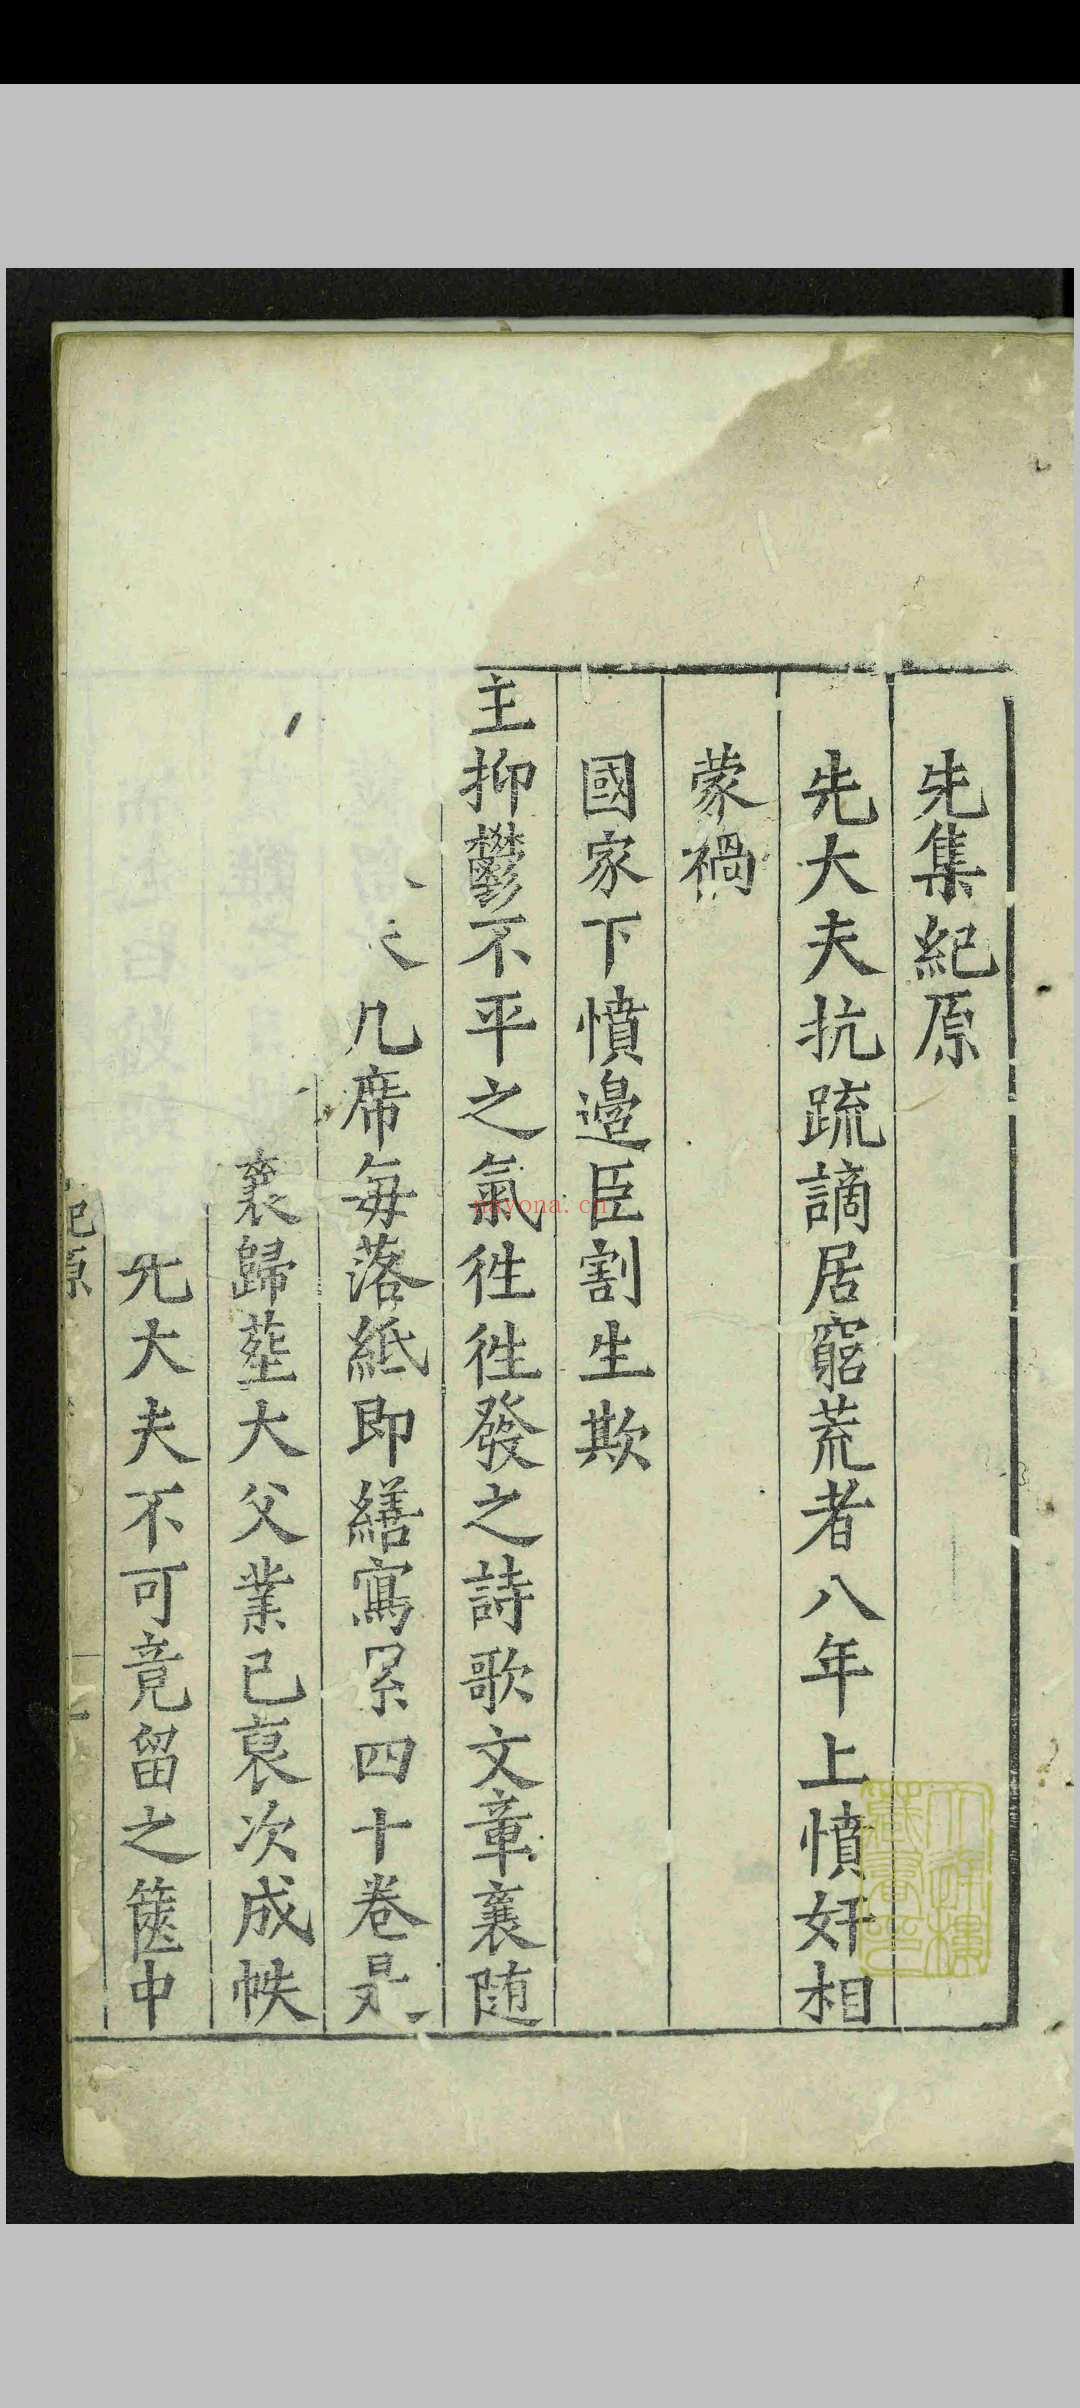 先集紀原
先大夫抗疏謫居窮荒者八年上憤奸相
蒙禍
國家下憤邉臣割生欺
主抑鬱不平之氣徃徃發之詩歌文章襄随
几席每落紙即繕寫累四十卷是
襄歸塟大父業已裒次成帙
先大夫不可竟留之篋中
紀原
nayona.cn